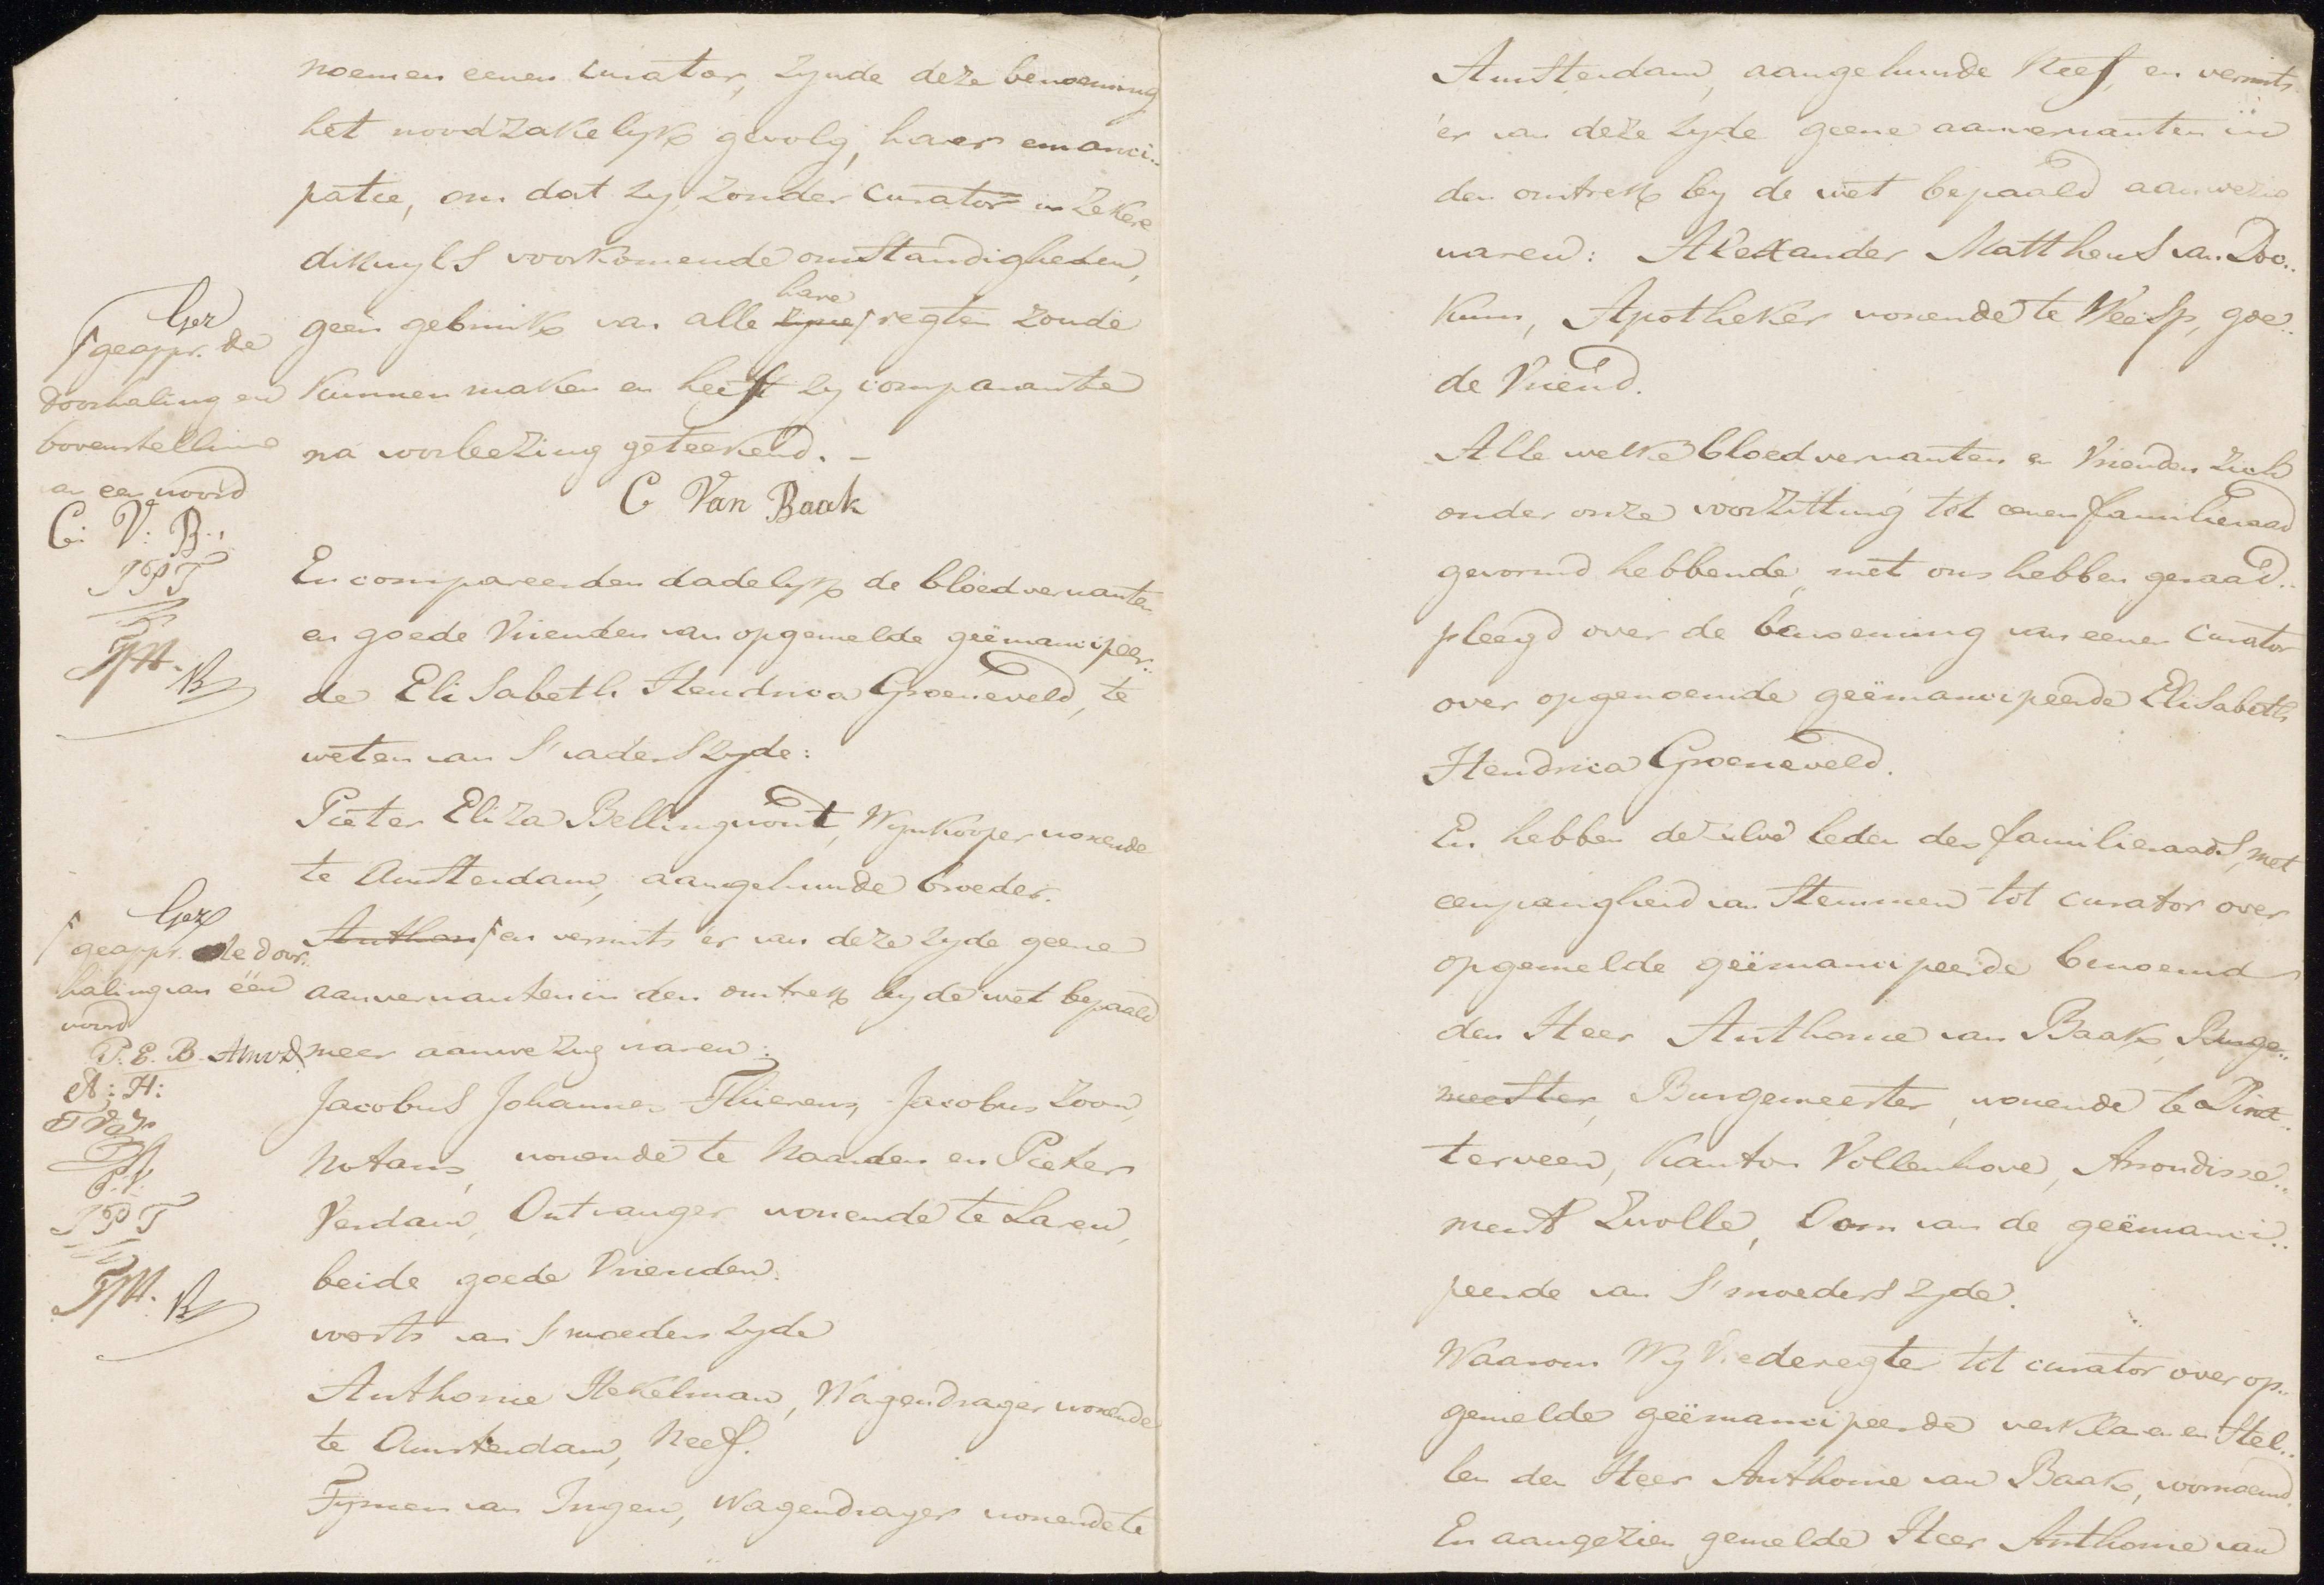 noemen eenen curator, zynde deze benoeming
het noodzakelyk gevolg, harer emanci..
patie, om dat zy, zonder curator in zekere
dikwyls voorkomende omstandigheden,
geen gebruik van alle zyne hare regten zoude
kunnen maken en heeft zy comparante
na voorleezing geteekend. –
C Van Baak
En compareerden dadelyk de bloedverwanten
en goede Vrienden van opgemelde geëmancipeer..
de Elisabeth Hendrica Groeneveld, te
weten van S'vaders zyde:
Pieter Eliza Bellingwout, Wynkooper wonende
te Amsterdam, aangehuwde broeder.
Anthon en vermits er van deze zyde geene
aanverwanten in den omtrek by de wet bepaald
meer aanwezig waren:
Jacobus Johannes Thierens, Jacobus Zoon,
Notaris, wonende te Naarden en Pieter
Verdam, Ontvanger wonende te Laren,
beide goede Vrienden.
voorts van S'moeders zyde
Anthonie Hekelman, Wagendrager wonende
te Amsterdam, Neef.
Tymen van Ingen, Wagendrager wonende te
geappr. de
doorhaling en
bovenstelling
van een woord
C: V: B:,
JPT
geappr. de door..
haling van één
woord
P. E. B.
A: H:
TVI
P.V.
JPT
Amsterdam, aangehuwde Neef, en vermits
er van deze zyde geene aanverwanten in
den omtrek by de wet bepaald aanwezig
waren: Alexander Mattheus van Doc..
kum, Apotheker wonende te Weesp, goe..
de Vriend.
Alle welke bloedverwanten en Vrienden zich
onder onze voorzitting tot eenen familieraad
gevormd hebbende, met ons hebben geraad..
pleegd over de benoeming van eenen curator
over opgenoemde geëmancipeerde Elisabeth
Hendrica Groeneveld.
En hebben dezelve leden des familieraads, met
eenparigheid van Stemmen tot curator over
opgemelde geëmancipeerde benoemd
den Heer Anthonie van Baak, Burge..
meester, Burgemeester, wonende te Dinx..
terveen, Kanton Vollenhove, Arrondisse..
ment Zwolle, Oom van de geëmanci..
peerde van S'moeders zyde.
Waarom Wy Vrederegter tot curator over op..
gemelde geëmancipeerde verklaren en Stel..
len den Heer Anthonie van Baak, voornoemd.
En aangezien gemelde Heer Anthonie van